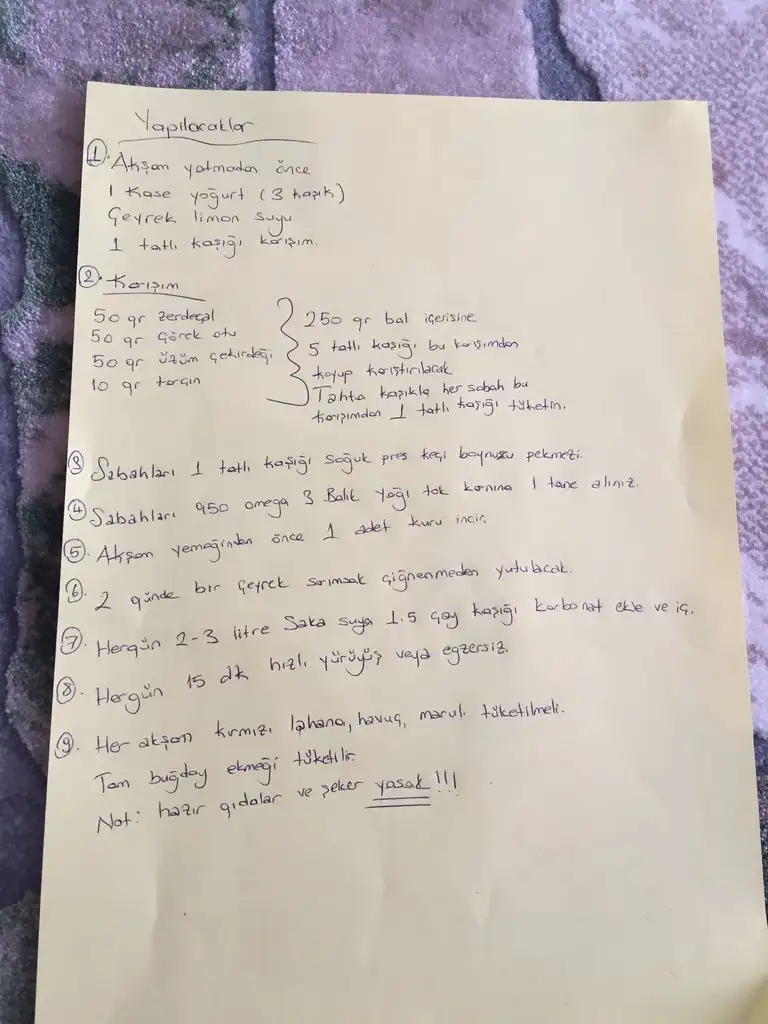 Yapılacaklar
1. Akşam yatmadan önce
1 Kase yoğurt (3 kaşık)
Çeyrek limon suyu
1 tatlı kaşığı karışım.
2. Karışım
50 gr zerdeçal
50 gr Çörek otu
50 gr üzüm çekirdeği
10 gr tarçın
250 gr bal içerisine
5 tatlı kaşığı bu karışımdan
koyup karıştırılacak
Tahta kaşıkla her sabah bu
karışımdan 1 tatlı kaşığı tüketin.
3 Sabahları 1 tatlı kaşığı soğuk pres keçi boynuzu pekmezi.
4 Sabahları 950 omega 3 Balık Yağı tok karnına 1 tane alınız.
5. Akşam yemeğinden önce 1 adet kuru incir.
6. 2 günde bir Çeyrek sarımsak çiğnenmeden yutulacak.
7. Hergün 2-3 litre Saka suya 1.5 çay kaşığı karbonat ekle ve iç.
8. Hergün 15 dk hızlı yürüyüş veya egzersiz.
9. Her akşam kırmızı lahana, havuç, marul tüketilmeli.
Tam buğday ekmeği tüketilir.
Not: hazır gıdalar ve şeker yasak!!!